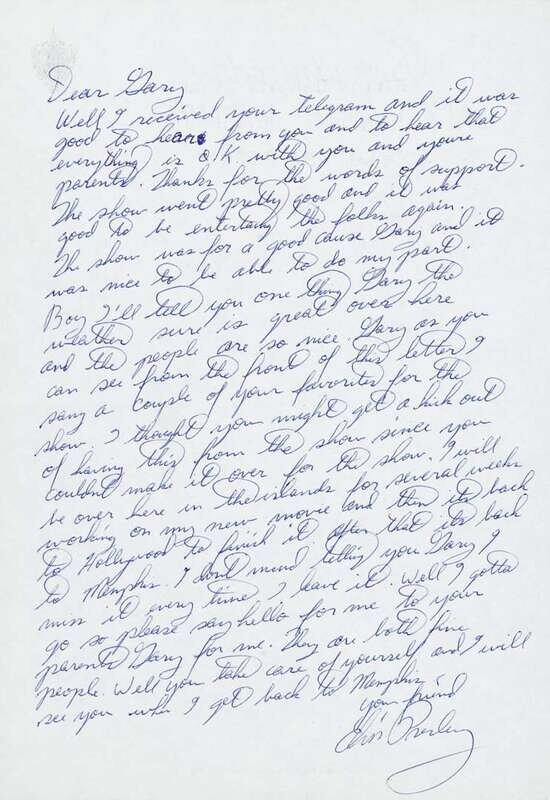 Dear Gary
Well I received your telegram and it was
good to hear from you and to hear that
everything is O K with you and youre
parents. Thanks for the words of support.
The show went pretty good and it was
good to be entertaing the folks again.
The show was for a good cause Gary and it
was nice to be able to do my part.
Boy I'll tell you one thing Gary the
weather sure is great over here
and the people are so nice. Gary as you
can see from the front of this letter I
sang a couple of your favorites for the
show. I thought you might get a kick out
of having this from the show since you
couldnt make it over for the show. I will
be over here in the islands for several weeks
working on my new movie and then its back
to Hollywood to finish it. After that its back
to Memphis. I dont mind telling you Gary I
miss it every time I leave it. Well I gotta
go so please say hello for me to your
parents Gary for me. They are both fine
people. Well you take care of yourself and I will
see you when I get back to Memphis.
your friend
Elvis Presley